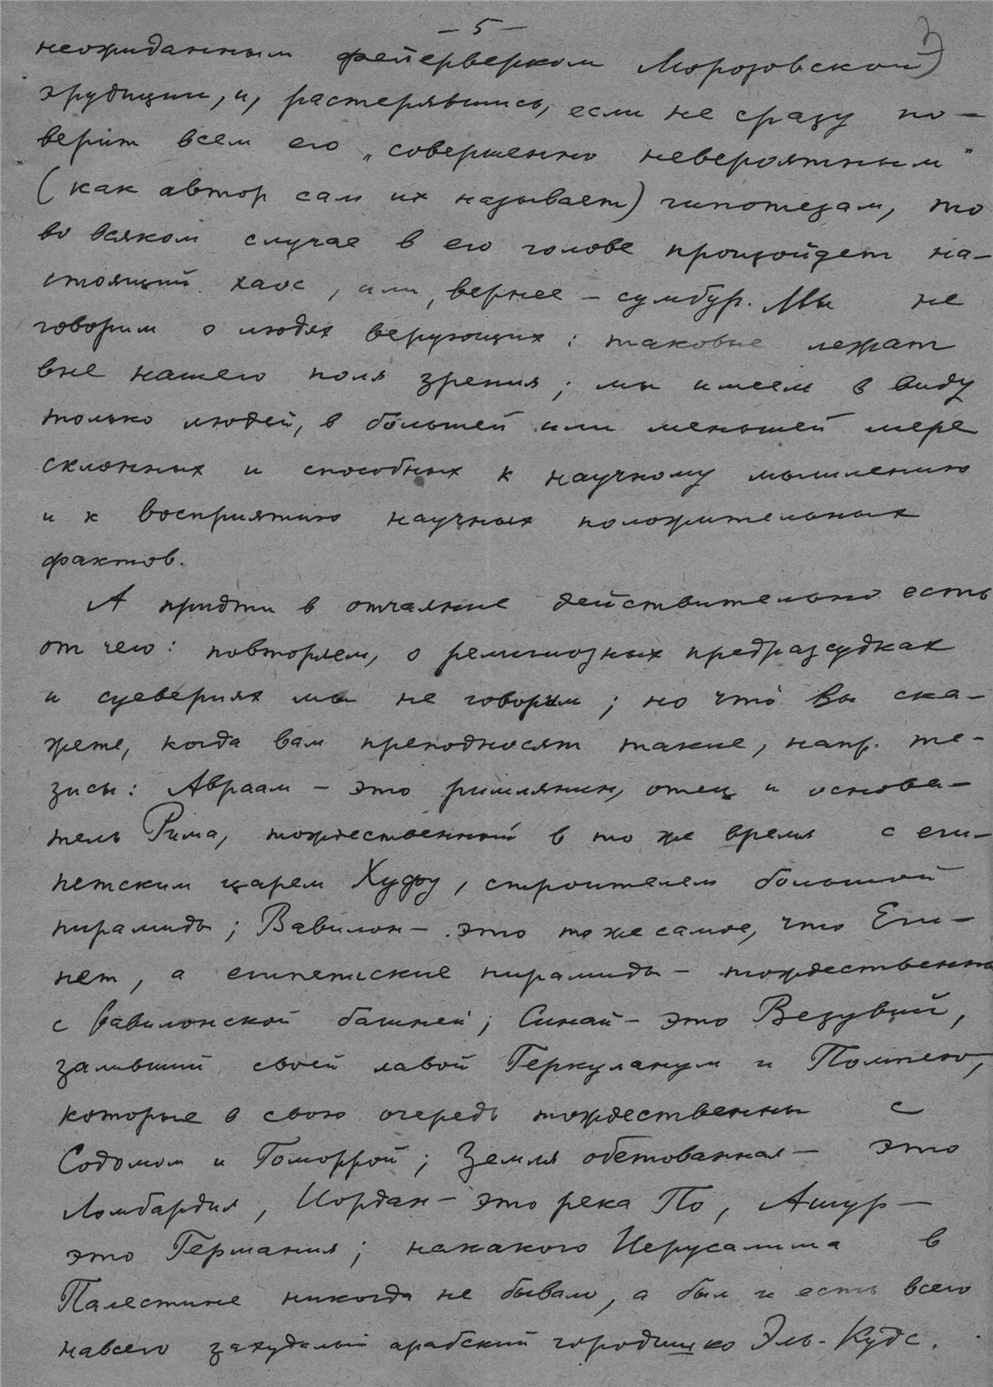 - 5 -
3)
неожиданным фейерверком Морозовской
эрудиции, и, растерявшись, если не сразу по-
верит всем его „совершенно невероятным"
(как автор сам их называет) гипотезам, то
во всяком случае в его голове произойдет на-
стоящий хаос, или, вернее - сумбур. Мы не
говорим о людях верующих: таковые лежат
вне нашего поля зрения; мы имеем в виду
только людей, в бо́льшей или меньшей мере
склонных и способных к научному мышлению
и к восприятию научных положительных
фактов.
А придти в отчаяние действительно есть
от чего: повторяем, о религиозных предрассудках
и суевериях мы не говорим; но что́ Вы ска-
жете, когда вам преподносят такие, напр. те-
зисы: Авраам - это римлянин, отец и основа-
тель Рима, тождественный в то же время с еги-
петским царем Хуфу, строителем большой
пирамиды; Вавилон - это то же самое, что Еги-
пет, а египетские пирамиды - тождественны
с Вавилонской башней; Синай - это Везувий,
заливший своей лавой Геркуланум и Помпею,
которые в свою очередь тождественны с
Содомом и Гоморрой; Земля обетованная - это
Ломбардия, Иордан - это река По, Ашур -
это Германия; никакого Иерусалима в
Палестине никогда не бывало, а был и есть всего
навсего захудалый арабский городишко Эль-Кудс.